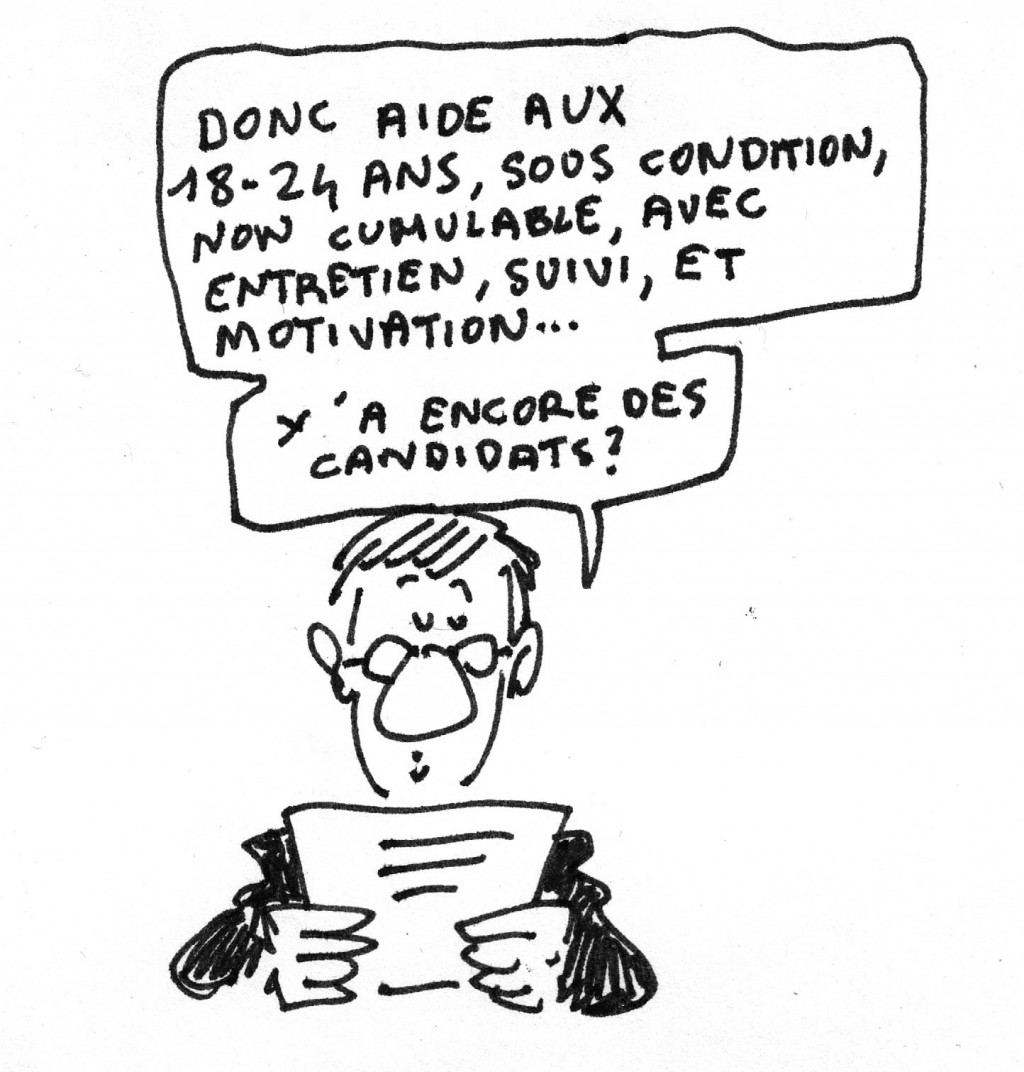 DONC AIDE AUX
18-24 ANS, SOUS CONDITION,
NON CUMULABLE, AVEC
ENTRETIEN, SUIVI, ET
MOTIVATION...
Y'A ENCORE DES
CANDIDATS?